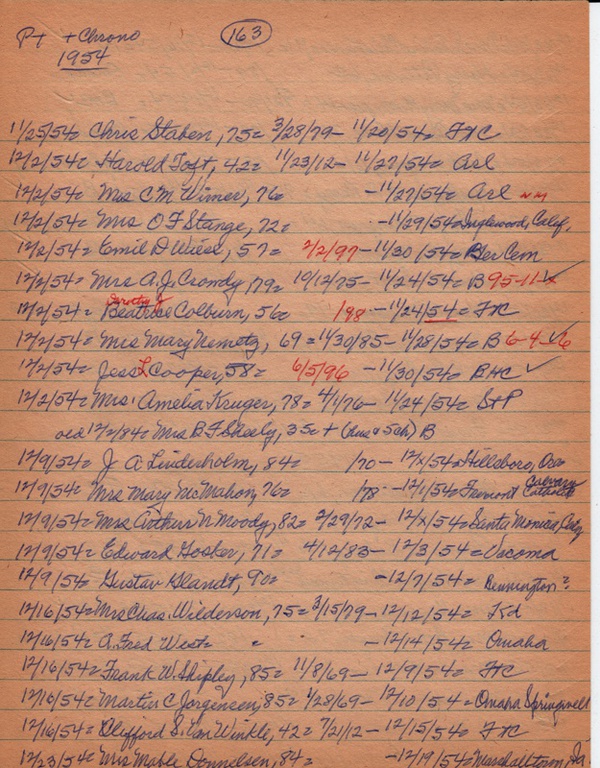 Pt + Chrono 163
1954
11/25/54= Chris Staben, 75= 3/28/79- 11/20/54= FTC
12/2/54= Harold Toft, 42= 11/23/12- 11/27/54= Arl
12/2/54= Mrs C M Wimer, 76= -11/27/54= Arl NM
12/2/54= Mrs O F Stange, 72= -11/29/54= Inglewood, Calif.
12/2/54= Emil D Wiese, 57= 2/2/97 -11/30/54= Ber Cem
12/2/54= Mrs A. J. Crondy, 79= 10/12/75- 11/24/54= B 95-11- ✓
12/2/54= Dorothy J Beatrice Colburn, 56= 1/98 -11/24/54= FTC
12/2/54= Mrs Mary Nemetz, 69= 11/30/85- 11/28/54= B 6-4-6 ✓
12/2/54= Jess L Cooper, 58= 6/5/96 -11/30/54= BHC ✓
12/2/54= Mrs. Amelia Kruger, 78= 4/1/76- 11/24/54= StP
12/2/84= Mrs B F Sheely, 35= + (hus & 5ch) B
12/9/54= J A Linderholm, 84= /70- 12/x/54= Hillsboro, Ore
12/9/54= Mrs Mary McMahon, 76= /78- -12/1/54= Fremont Calvary Catholic
12/9/54= Mrs Arthur N Moody, 82= 2/29/72- 12/x/54= Santa Monica, Calif
12/9/54= Edward Hosker, 71= 4/12/83- 12/3/54= Vacoma
12/9/54= Gustav Glandt, 90= -12/7/54= Bennington?
12/16/54= Mrs Chas. Wilderson, 75= 3/15/79- 12/12/54= Kd
12/16/54= A. Fred West= -12/14/54= Omaha
12/16/54= Frank W. Shipley, 85= 11/8/69- 12/9/54= FTC
12/16/54= Martin C Jorgensen, 85= 1/28/69- 12/10/54= Omaha Springwell
12/16/54= Clifford S. Van Winkle, 42= 7/21/12- 12/15/54= FTC
12/23/54= Mrs Mable Donnelsen, 84= -12/19/54= Marshalltown, Ia.